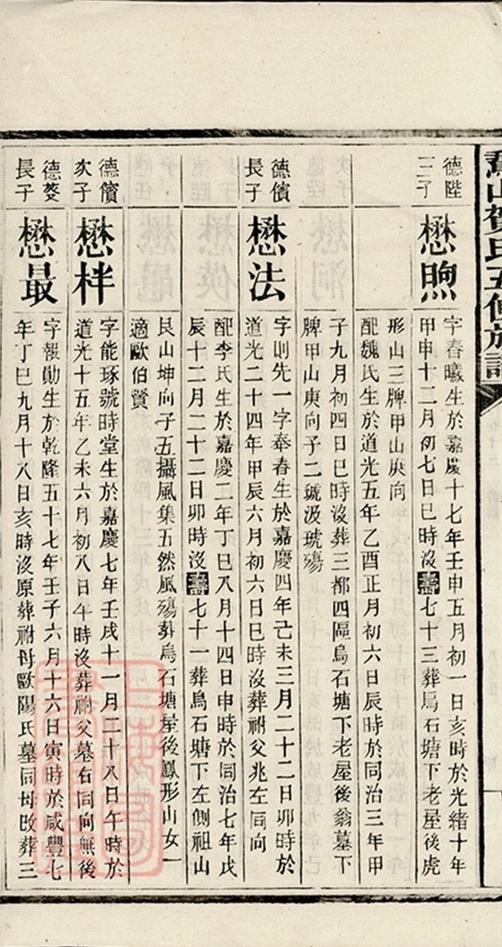 德陛
三子
懋煦
字春曦生於嘉慶十七年壬申五月初一日亥時於光緒十年
甲申十二月初七日巳時沒壽七十三葬烏石塘下老屋後虎
形山三脾甲山庚向
配魏氏生於道光五年乙酉正月初六日辰時於同治三年甲
子九月初四日巳時沒葬三都四區烏石塘下老屋後翁墓下
脾甲山庚向子二琥汲琥殤
德儐
長子
懋法
字則先一字奉春生於嘉慶四年己未三月二十二日卯時於
道光二十四年甲辰六月初六日巳時沒葬祔父兆左同向
配李氏生於嘉慶二年丁巳八月十四日申時於同治七年戊
辰十二月二十二日卯時沒壽七十一葬烏石塘下左側祖山
艮山坤向子五攝風集五然風殤葬烏石塘屋後鳳形山女一
適歐伯賢
德儐
次子
懋柈
字能琢號時堂生於嘉慶七年壬戌十一月二十八日午時於
道光十五年乙未六月初八日午時沒葬祔父墓右同向無後
德婺
長子
懋最
字報勛生於乾隆五十七年壬子六月十六日寅時於咸豐七
年丁巳九月十八日亥時沒原葬祔母歐陽氏墓同母改葬三